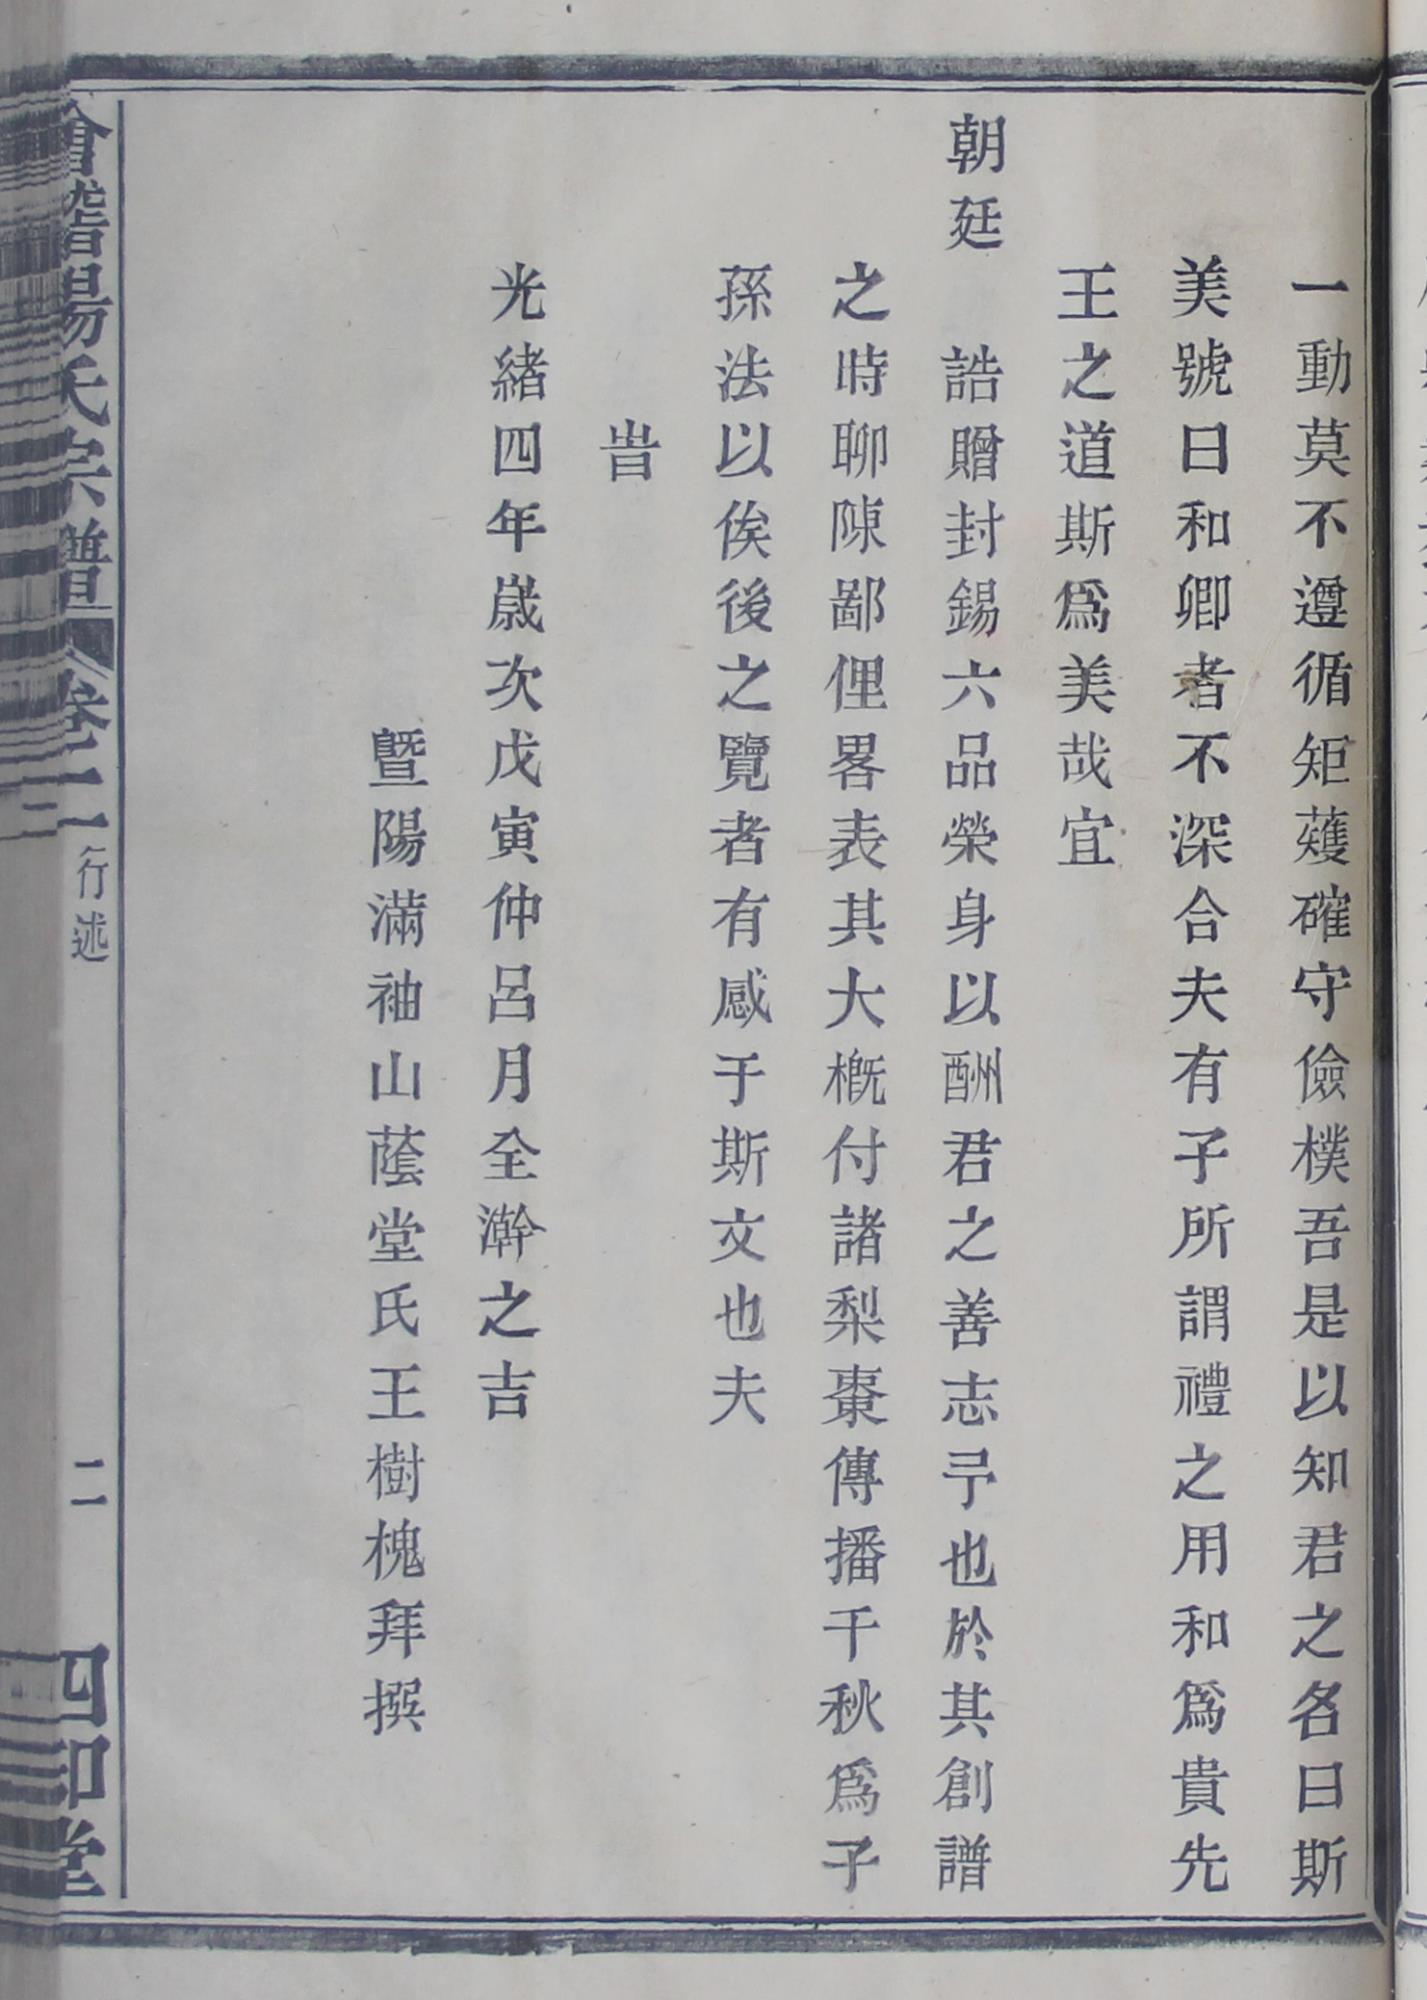 一動莫不遵循矩蒦確守儉樸吾是以知君之名曰斯
美號曰和卿者不深合夫有子所謂禮之用和爲貴先
王之道斯爲美哉宜
朝廷　誥贈封錫六品榮身以酬君之善志予也於其創譜
之時聊陳鄙俚畧表其大槪付諸梨棗傳播千秋爲子
孫法以俟後之覽者有感于斯文也夫
旹
光緒四年歲次戊寅仲呂月全澣之吉
暨陽滿袖山蔭堂氏王樹槐拜撰
會稽楊氏宗譜 卷二 行述 二 四知堂